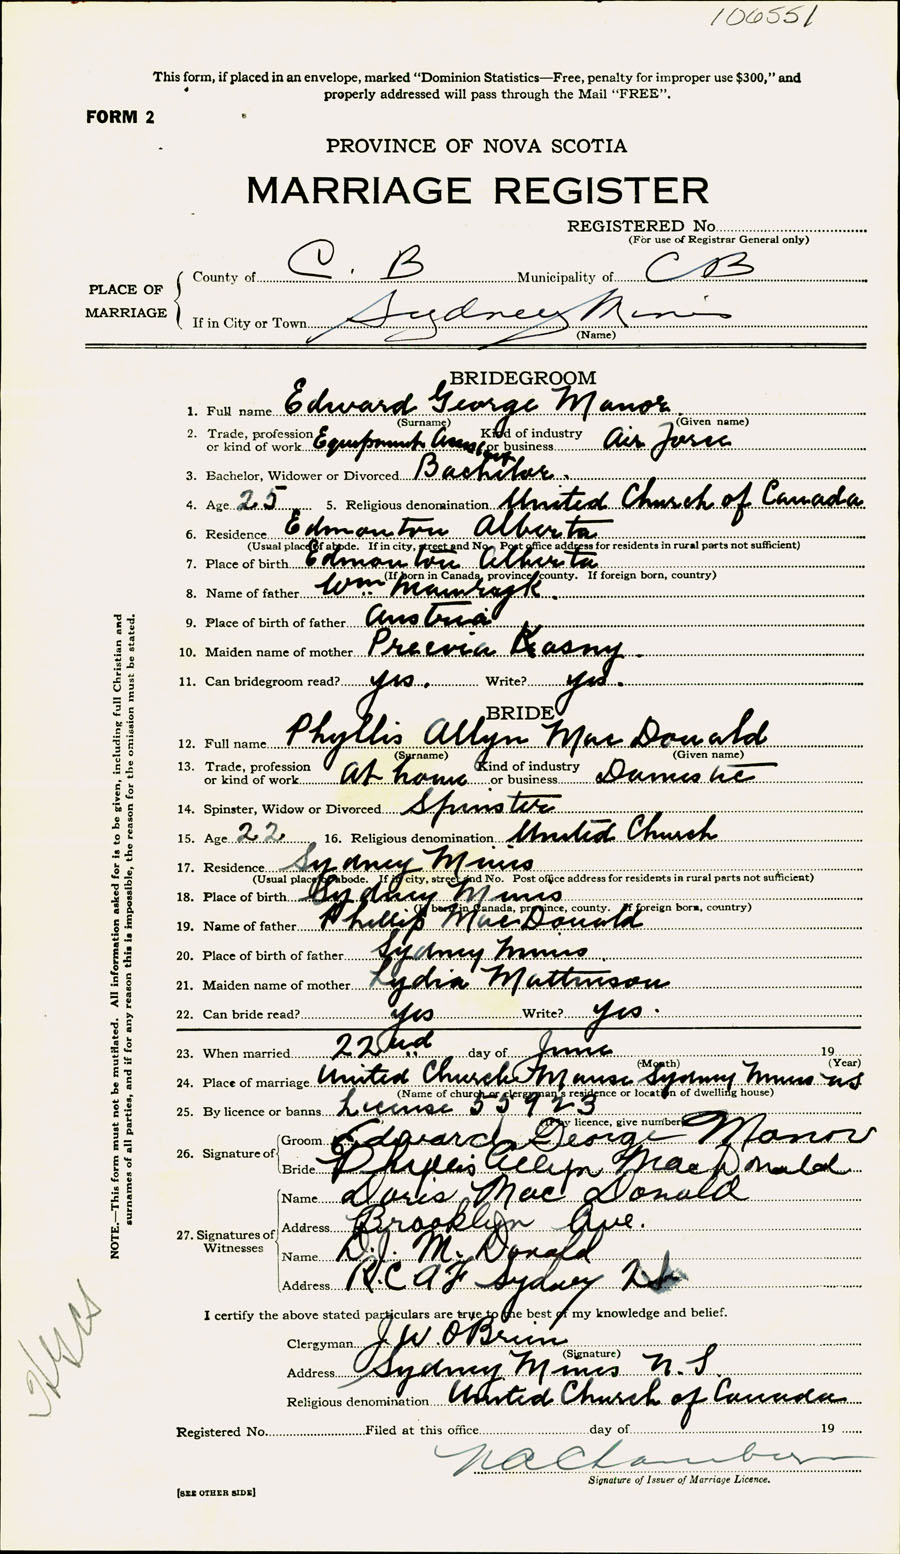 106551
This form, if placed in an envelope, marked "Dominion Statistics—Free, penalty for improper use $300," and
properly addressed will pass through the Mail "FREE".
FORM 2
PROVINCE OF NOVA SCOTIA
MARRIAGE REGISTER
REGISTERED No.
(For use of Registrar General only)
PLACE OF MARRIAGE
County of C. B Municipality of C B
If in City or Town Sydney Mines
(Name)
BRIDEGROOM
1. Full name Edward George Manor
(Surname) (Given name)
2. Trade, profession or kind of work Equipment Kind of industry or business Air Force
3. Bachelor, Widower or Divorced Bachelor.
4. Age 25 5. Religious denomination United Church of Canada
6. Residence Edmonton Alberta
(Usual place of abode. If in city, street and No. Post office address for residents in rural parts not sufficient)
7. Place of birth Edmonton Alberta
(If born in Canada, province, county. If foreign born, country)
8. Name of father Wm.
9. Place of birth of father Austria
10. Maiden name of mother Kasny.
11. Can bridegroom read? yes. Write? yes.
BRIDE
12. Full name Phyllis Allyn MacDonald
(Surname) (Given name)
13. Trade, profession or kind of work At home Kind of industry or business Domestic
14. Spinster, Widow or Divorced Spinster
15. Age 22 16. Religious denomination United Church
17. Residence Sydney Mines
(Usual place of abode. If in city, street and No. Post office address for residents in rural parts not sufficient)
18. Place of birth Sydney Mines
(If born in Canada, province, county. If foreign born, country)
19. Name of father Phillip MacDonald
20. Place of birth of father Sydney Mines.
21. Maiden name of mother Lydia Mattinson
22. Can bride read? yes Write? yes.
23. When married 22nd day of June 19
(Month) (Year)
24. Place of marriage United Church Manse Sydney Mines NS
(Name of church or clergyman's residence or location of dwelling house)
25. By licence or banns License 55923
(If by licence, give number)
26. Signature of Groom Edward George Manor
Bride Phyllis Allyn MacDonald
27. Signatures of Witnesses
Name Doris Mac Donald
Address Brooklyn Ave.
Name D.J. McDonald
Address R.C.A.F Sydney
I certify the above stated particulars are true to the best of my knowledge and belief.
Clergyman J W. O'Brien
(Signature)
Address Sydney Mines N.S
Religious denomination United Church of Canada
Registered No. Filed at this office day of 19
N A Chambers
Signature of Issuer of Marriage Licence.
[SEE OTHER SIDE]
NOTE.—This form must not be mutilated. All information asked for is to be given, including full Christian and
surnames of all parties, and if for any reason this is impossible, the reason for the omission must be stated.